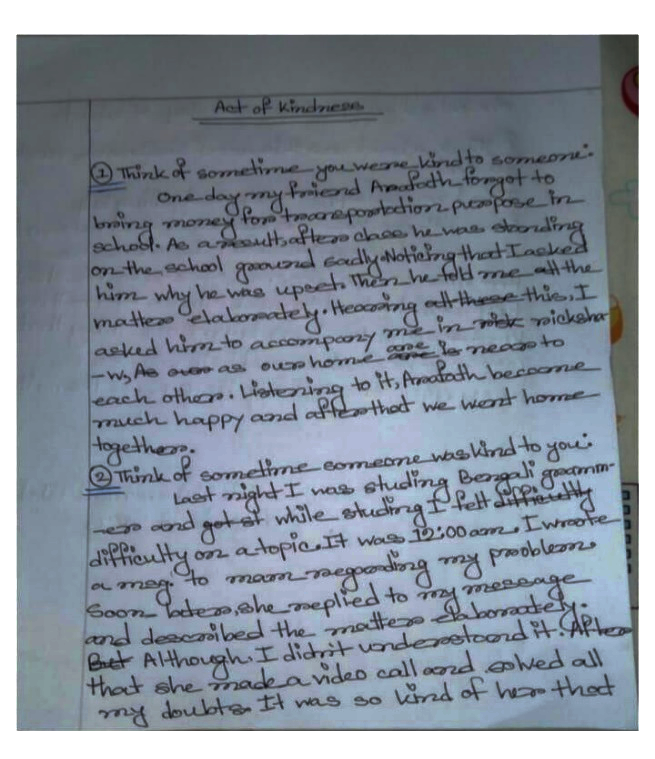 Act of Kindness
① Think of sometime you were kind to someone:
One day my friend Arafath forgot to
bring money for transportation purpose in
school. As a result, after class he was standing
on the school ground sadly. Noticing that I asked
him why he was upset. Then he told me all the
matter elaborately. Hearing all these this, I
asked him to accompany me in risk ricksha
-w, As over as our home are is near to
each other. Listening to it, Arafath become
much happy and after that we went home
together.
② Think of sometime someone was kind to you:
Last night I was studing Bengali gramm-
-er and got st while studing I felt difficultly
difficulty on a topic. It was 12:00 am. I wrote
a msg. to mam regarding my problem.
Soon later, she replied to my message
and described the matter elaborately.
But Although, I didn't understand it. After
that she made a video call and solved all
my doubts. It was so kind of her that